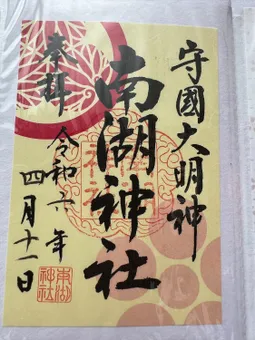 守國大明神
南湖神社
奉拜
令和六年
四月十一日
南湖
神社